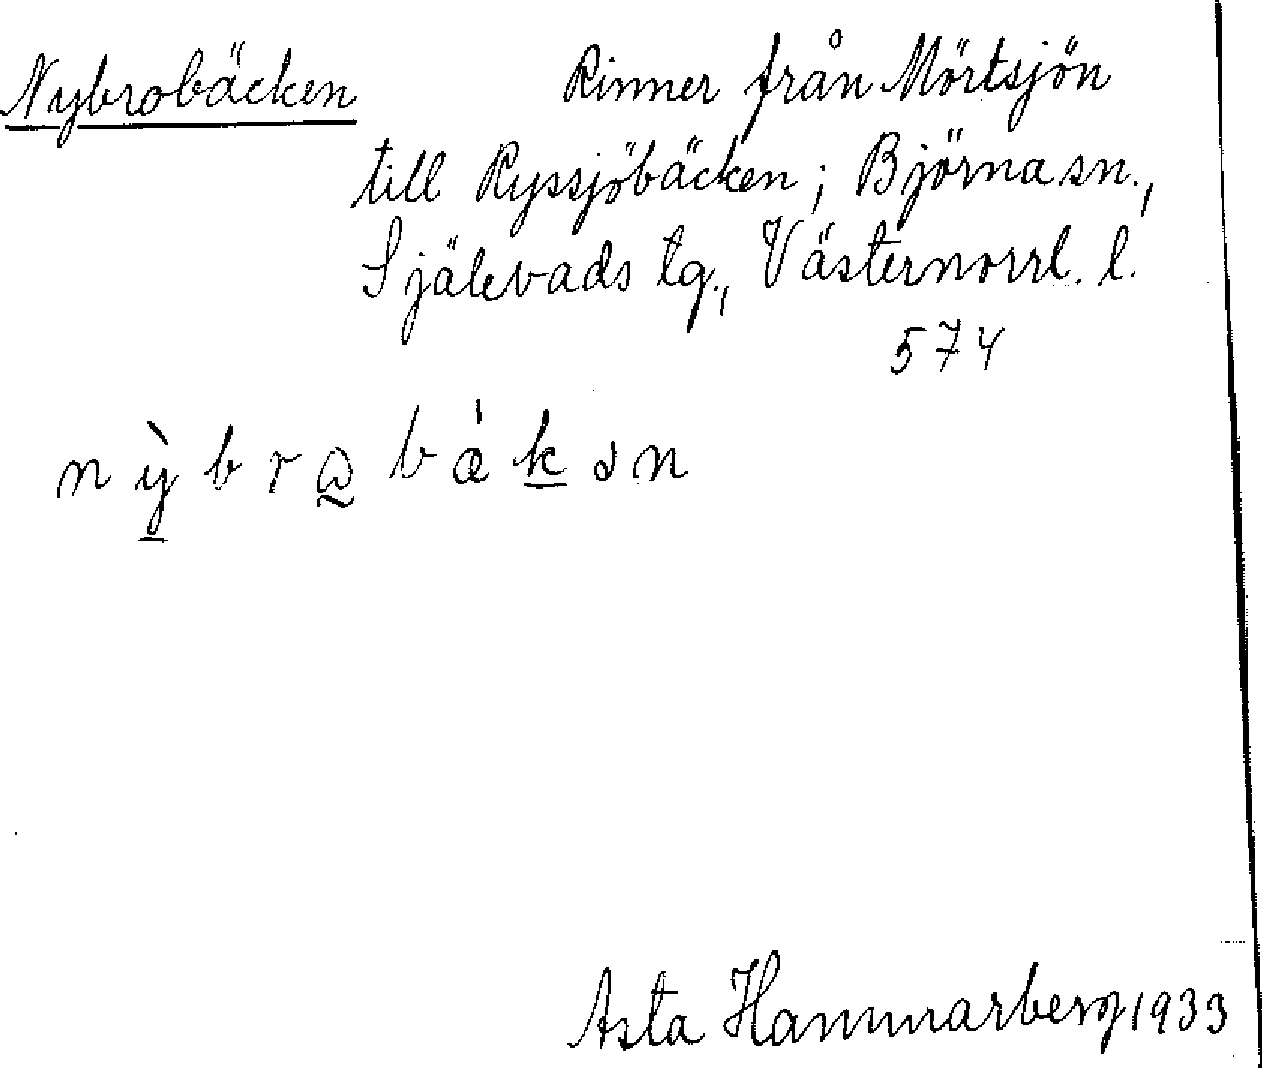 Nybrobäcken Rinner från Mörtsjön
till Ryssjöbäcken; Björna sn.,
Själevads tg., Västernorrl. l.
574
Asta Hammarberg 1933